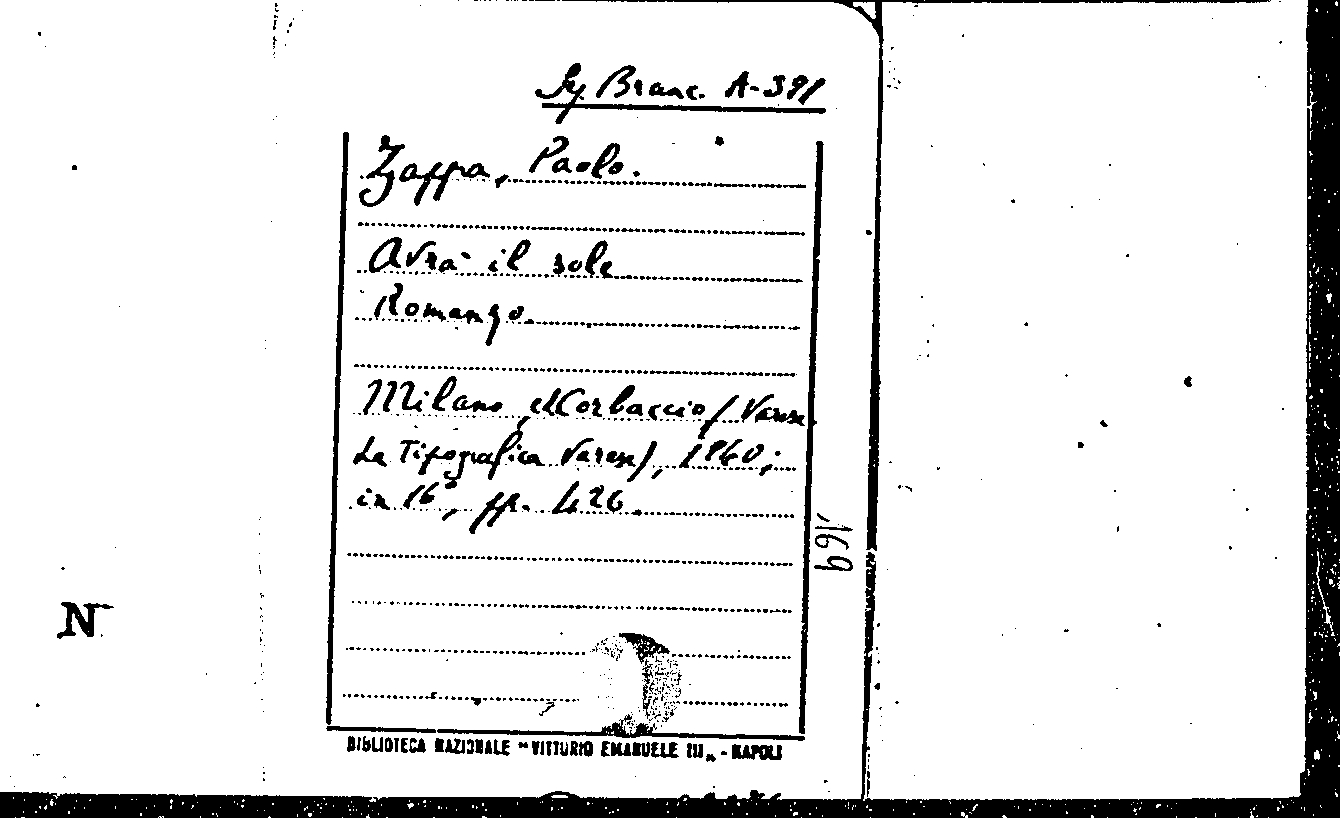 Sy Branc. A-391
Zappa, Paolo.
Avrà il sole
Romanzo.
Milano, Corbaccio (Varese.
La Tipografica Varese), 1960;
in 16°, pp. 426.
169
N
BIBLIOTECA NAZIONALE "VITTORIO EMANUELE III„ - NAPOLI